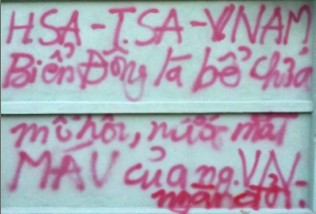 H.SA - T.SA - V.NAM
Biển Đông là bể chứa
mồ hôi, nước mắt
MÁU của ng. VN -
ngàn đời.